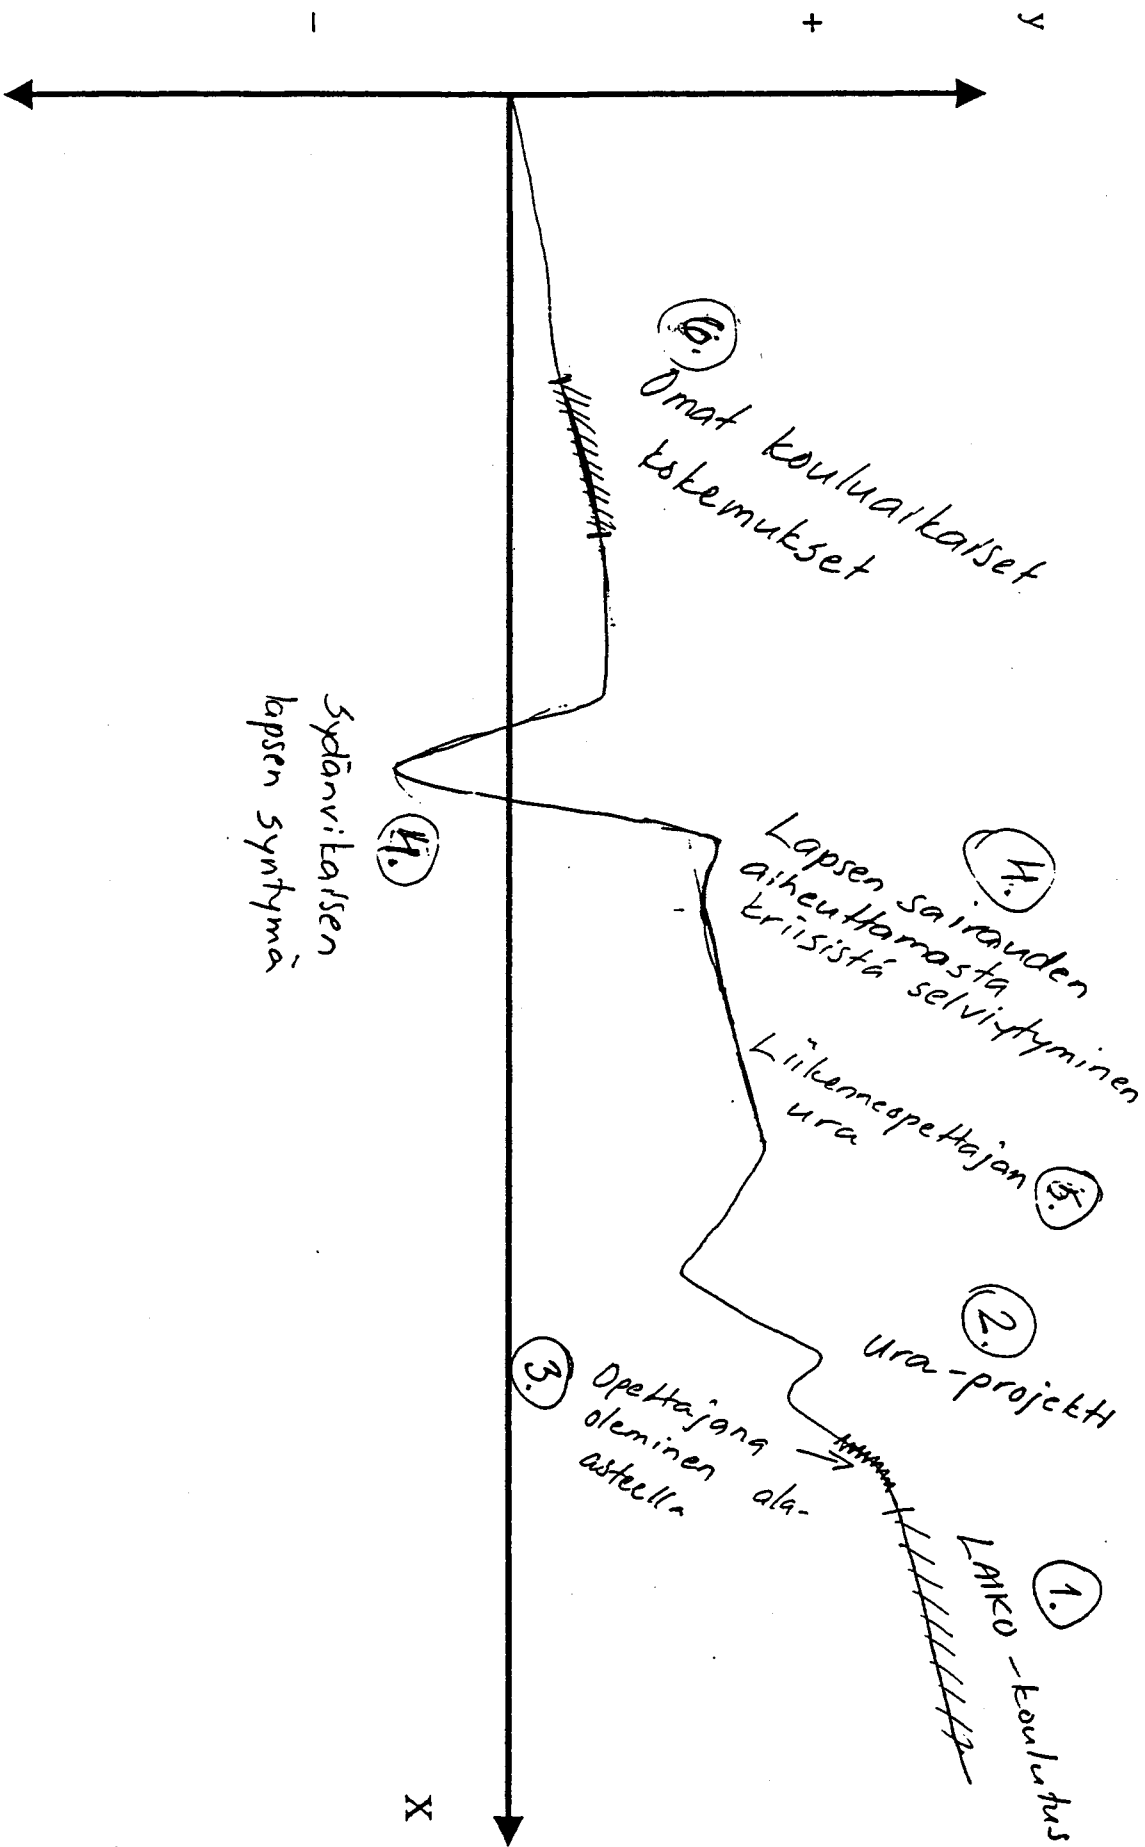 y
+
-
X
6.
Omat kouluaikaiset
kokemukset
Sydänvikaisen
lapsen syntymä
4.
4.
Lapsen sairauden
aiheuttamasta
kriisistä selviytyminen
Liikenneopettajan
ura
5.
2.
ura-projekti
3.
Opettajana
oleminen ala-
asteella
1.
LAIKO -koulutus